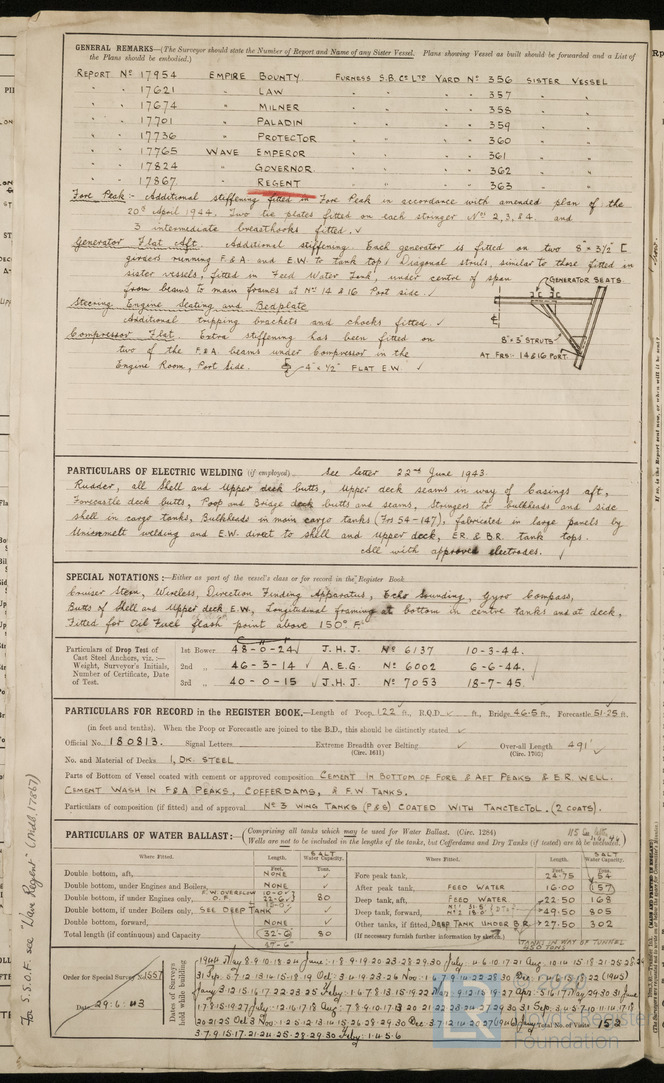 GENERAL REMARKS—(The Surveyor should state the Number of Report and Name of any Sister Vessel. Plans showing Vessel as built should be forwarded and a List of
the Plans should be embodied.)
REPORT No 17954 EMPIRE BOUNTY. FURNESS S.B. Co LTD YARD No 356 SISTER VESSEL
" " 17621 " LAW " " " 357 " "
" " 17674 " MILNER " " " 358 " "
" " 17701 " PALADIN " " " 359 " "
" " 17736 " PROTECTOR " " " 360 " "
" " 17765 WAVE EMPEROR " " " 361 " "
" " 17824 " GOVERNOR " " " 362 " "
" " 17867 " REGENT " " " 363 " "
Fore Peak:- Additional stiffening fitted in Fore Peak in accordance with amended plan of the
20th April 1944. Two tie plates fitted on each stringer Nos 2, 3, & 4. and
3 intermediate breasthooks fitted. ✓
Generator Flat Aft. Additional stiffening. Each generator is fitted on two 8" × 3½" [
girders running F. & A. and E.W. to tank top. Diagonal struts, similar to those fitted in
sister vessels, fitted in Feed Water Tank, under centre of span
from beams to main frames at Nos 14 & 16 Port side. ✓
GENERATOR SEATS.
8" × 3" STRUTS
AT FRS:- 14 & 16 PORT.
Steering Engine Seating and Bedplate
Additional tripping brackets and chocks fitted ✓
Compressor Flat. Extra stiffening has been fitted on
two of the F. & A. beams under Compressor in the
Engine Room, Port Side. 4" × ½" FLAT E.W. ✓
PARTICULARS OF ELECTRIC WELDING (if employed) See letter 22nd June 1943.
Rudder, all Shell and Upper deck butts, Upper deck seams in way of Casings aft,
Forecastle deck butts, Poop and Bridge deck butts and seams, Stringers to bulkheads and side
shell in cargo tanks, Bulkheads in main cargo tanks (Frs 54-147), fabricated in large panels by
Unionmelt welding and E.W. direct to shell and upper deck, E.R. & B.R. tank tops.
All with approved electrodes. ✓
SPECIAL NOTATIONS:—Either as part of the vessel's class or for record in the Register Book
Cruiser Stern, Wireless, Direction Finding Apparatus, Echo Sounding, Gyro Compass,
Butts of Shell and Upper deck E.W., Longitudinal framing at bottom in centre tanks and at deck,
Fitted for Oil Fuel flash point above 150° F.
Particulars of Drop Test of
Cast Steel Anchors, viz.:—
Weight, Surveyor's Initials,
Number of Certificate, Date
of Test.
1st Bower 48-0-24 ✓ J.H.J. No 6137 10-3-44.
2nd " 46-3-14 ✓ A.E.G. No 6002 6-6-44.
3rd " 40-0-15 ✓ J.H.J. No 7053 18-7-45.
PARTICULARS FOR RECORD in the REGISTER BOOK.—Length of Poop 122 ft., R.Q.D. ✓ ft., Bridge 46.5 ft., Forecastle 51.25 ft.
(in feet and tenths). When the Poop or Forecastle are joined to the B.D., this should be distinctly stated ✓
Official No. 180813. Signal Letters Extreme Breadth over Belting ✓ Over-all Length 491' ✓
(Circ. 1611) (Circ. 1703)
No. and Material of Decks 1, DK. STEEL.
Parts of Bottom of Vessel coated with cement or approved composition CEMENT IN BOTTOM OF FORE & AFT PEAKS & E.R. WELL.
CEMENT WASH IN F & A PEAKS, COFFERDAMS, & F.W. TANKS.
Particulars of composition (if fitted) and of approval No 3 WING TANKS (P & S) COATED WITH TANCTECTOL. (2 COATS).
PARTICULARS OF WATER BALLAST:—(Comprising all tanks which may be used for Water Ballast. (Circ. 1284)
Wells are not to be included in the lengths of the tanks, but Cofferdams and Dry Tanks (if tested) are to be included.)
Where Fitted. Length. SALT Water Capacity.
Feet. Tons.
Double bottom, aft, NONE
Double bottom, under Engines and Boilers, NONE ✓
Double bottom, if under Engines only, F.W. OVERFLOW O.F. 80
Double bottom, if under Boilers only, SEE DEEP TANK ✓
Double bottom, forward, NONE ✓
Total length (if continuous) and Capacity 32'-6" 80
37'-6"
Where Fitted. Length. SALT Water Capacity.
Feet. Tons.
Fore peak tank, 24.75 54
After peak tank, FEED WATER 16.00 157
Deep tank, aft, FEED WATER 22.50 168
Deep tank, forward, 49.50 805
Other tanks, if fitted, DEEP TANK UNDER B.R. 27.50 302
(If necessary furnish further information by sketch.)
TANKS IN WAY OF TUNNEL
Order for Special Survey No. 1557
Date 29.6.43
Dates of Surveys held while building
Total No. of Visits 152
For S.S.O.F. see "Wave Regent" (Mdb. 17867)
© 2020
LR
Lloyd's Register
Foundation